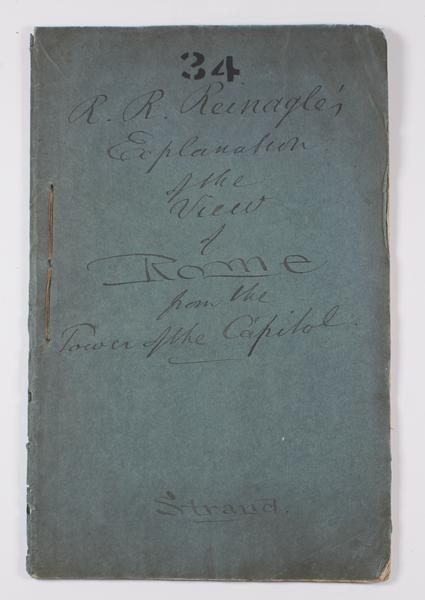 34
R. R. Reinagle's
Explanation
of the
View
of
Rome
from the
Tower of the Capitol.
Strand.